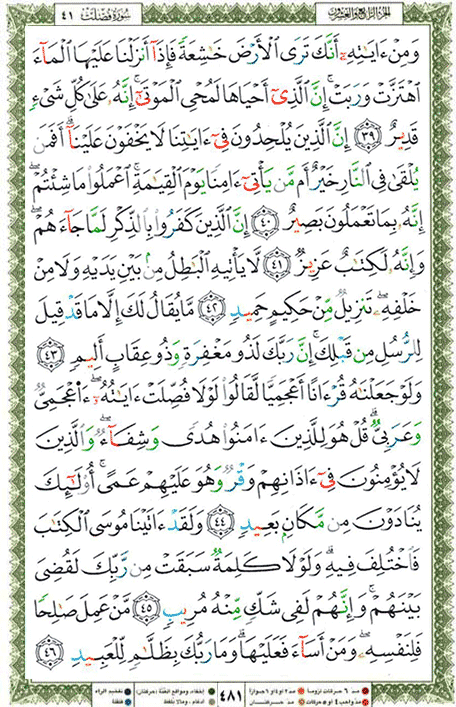 الجزء الرابع والعشرون
سُورَةُ فُصِّلَتْ ٤١
وَمِنْ ءَايَٰتِهِۦٓ أَنَّكَ تَرَى ٱلْأَرْضَ خَٰشِعَةً فَإِذَآ أَنزَلْنَا عَلَيْهَا ٱلْمَآءَ
ٱهْتَزَّتْ وَرَبَتْ ۚ إِنَّ ٱلَّذِىٓ أَحْيَاهَا لَمُحْىِ ٱلْمَوْتَىٰٓ ۚ إِنَّهُۥ عَلَىٰ كُلِّ شَىْءٍ
قَدِيرٌ ٣٩ إِنَّ ٱلَّذِينَ يُلْحِدُونَ فِىٓ ءَايَٰتِنَا لَا يَخْفَوْنَ عَلَيْنَآ ۗ أَفَمَن
يُلْقَىٰ فِى ٱلنَّارِ خَيْرٌ أَم مَّن يَأْتِىٓ ءَامِنًا يَوْمَ ٱلْقِيَٰمَةِ ۚ ٱعْمَلُوا۟ مَا شِئْتُمْ ۖ
إِنَّهُۥ بِمَا تَعْمَلُونَ بَصِيرٌ ٤٠ إِنَّ ٱلَّذِينَ كَفَرُوا۟ بِٱلذِّكْرِ لَمَّا جَآءَهُمْ ۖ
وَإِنَّهُۥ لَكِتَٰبٌ عَزِيزٌ ٤١ لَّا يَأْتِيهِ ٱلْبَٰطِلُ مِنۢ بَيْنِ يَدَيْهِ وَلَا مِنْ
خَلْفِهِۦ ۖ تَنزِيلٌ مِّنْ حَكِيمٍ حَمِيدٍ ٤٢ مَّا يُقَالُ لَكَ إِلَّا مَا قَدْ قِيلَ
لِلرُّسُلِ مِن قَبْلِكَ ۚ إِنَّ رَبَّكَ لَذُو مَغْفِرَةٍ وَذُو عِقَابٍ أَلِيمٍ ٤٣
وَلَوْ جَعَلْنَٰهُ قُرْءَانًا أَعْجَمِيًّا لَّقَالُوا۟ لَوْلَا فُصِّلَتْ ءَايَٰتُهُۥٓ ۖ ءَا۬عْجَمِىٌّ
وَعَرَبِىٌّ ۗ قُلْ هُوَ لِلَّذِينَ ءَامَنُوا۟ هُدًى وَشِفَآءٌ ۖ وَٱلَّذِينَ
لَا يُؤْمِنُونَ فِىٓ ءَاذَانِهِمْ وَقْرٌ وَهُوَ عَلَيْهِمْ عَمًى ۚ أُو۟لَٰٓئِكَ
يُنَادَوْنَ مِن مَّكَانٍۭ بَعِيدٍ ٤٤ وَلَقَدْ ءَاتَيْنَا مُوسَى ٱلْكِتَٰبَ
فَٱخْتُلِفَ فِيهِ ۗ وَلَوْلَا كَلِمَةٌ سَبَقَتْ مِن رَّبِّكَ لَقُضِىَ
بَيْنَهُمْ ۚ وَإِنَّهُمْ لَفِى شَكٍّ مِّنْهُ مُرِيبٍ ٤٥ مَّنْ عَمِلَ صَٰلِحًا
فَلِنَفْسِهِۦ ۖ وَمَنْ أَسَآءَ فَعَلَيْهَا ۗ وَمَا رَبُّكَ بِظَلَّٰمٍ لِّلْعَبِيدِ ٤٦
مد ٦ حركات لزوماً مد ٢ او ٤ او ٦ جوازاً ٤٨١ إخفاء، ومواقع الغنة (حركتان) تفخيم الراء
مد واجب ٤ او ٥ حركات مد حركتان إدغام، وما لا يلفظ قلقلة